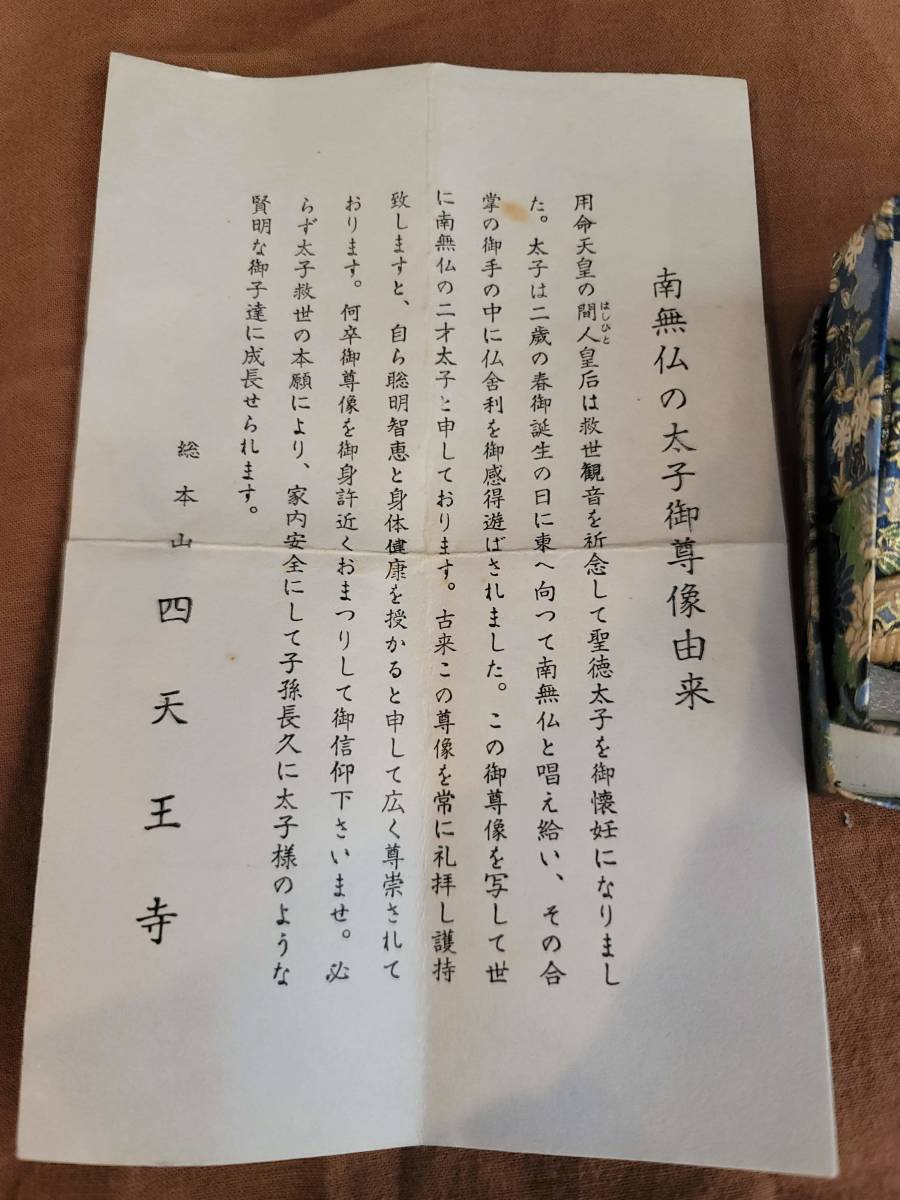 南無仏の太子御尊像由来
用命天皇の間人皇后は救世観音を祈念して聖徳太子を御懐妊になりまし
はしひと
た。太子は二歳の春御誕生の日に東へ向つて南無仏と唱え給い、その合
掌の御手の中に仏舎利を御感得遊ばされました。この御尊像を写して世
に南無仏の二才太子と申しております。古来この尊像を常に礼拝し護持
致しますと、自ら聡明智恵と身体健康を授かると申して広く尊崇されて
おります。何卒御尊像を御身許近くおまつりして御信仰下さいませ。必
らず太子救世の本願により、家内安全にして子孫長久に太子様のような
賢明な御子達に成長せられます。
総本山 四天王寺